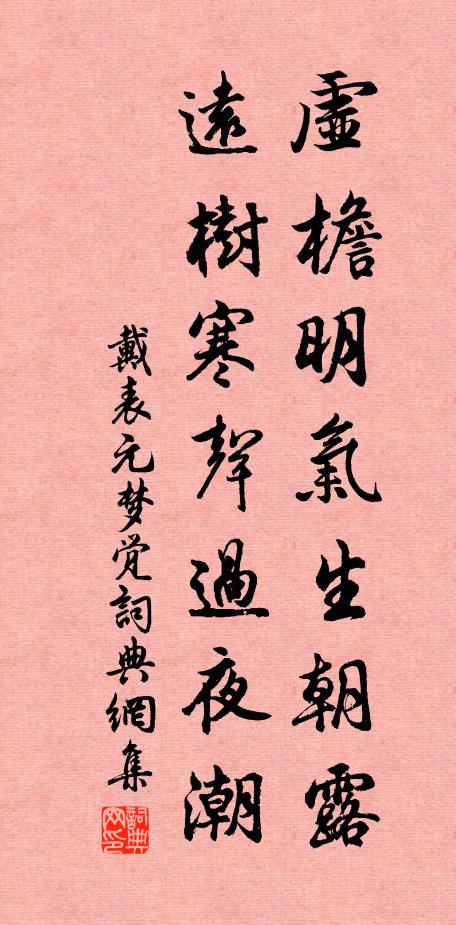 虛檐明氣生朝露
遠樹寒聲過夜潮
戴表元梦觉詞典網集
詞典网印